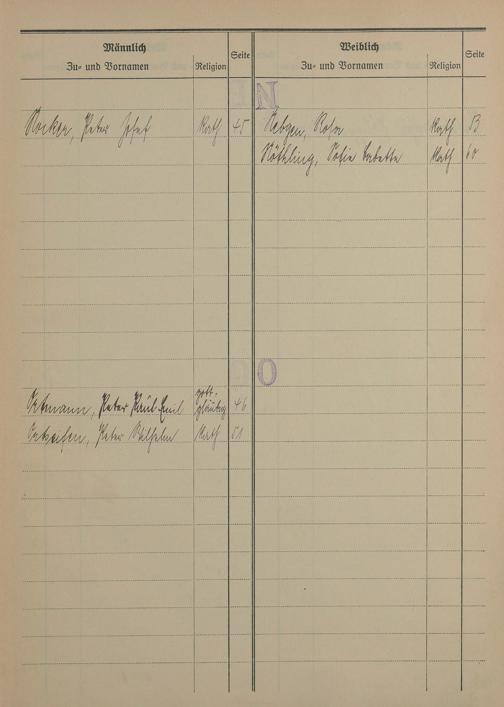 Männlich
Zu- und Vornamen
Religion
Seite
Weiblich
Zu- und Vornamen
Religion
Seite
N
Peter Josef Kath 45
Nebgen, Rosa Kath 53
Nöthling, Sofie Babette Kath 60
O
Ortmann, Peter Paul Emil gott-
gläubig 46
Peter Wilhelm Kath 51